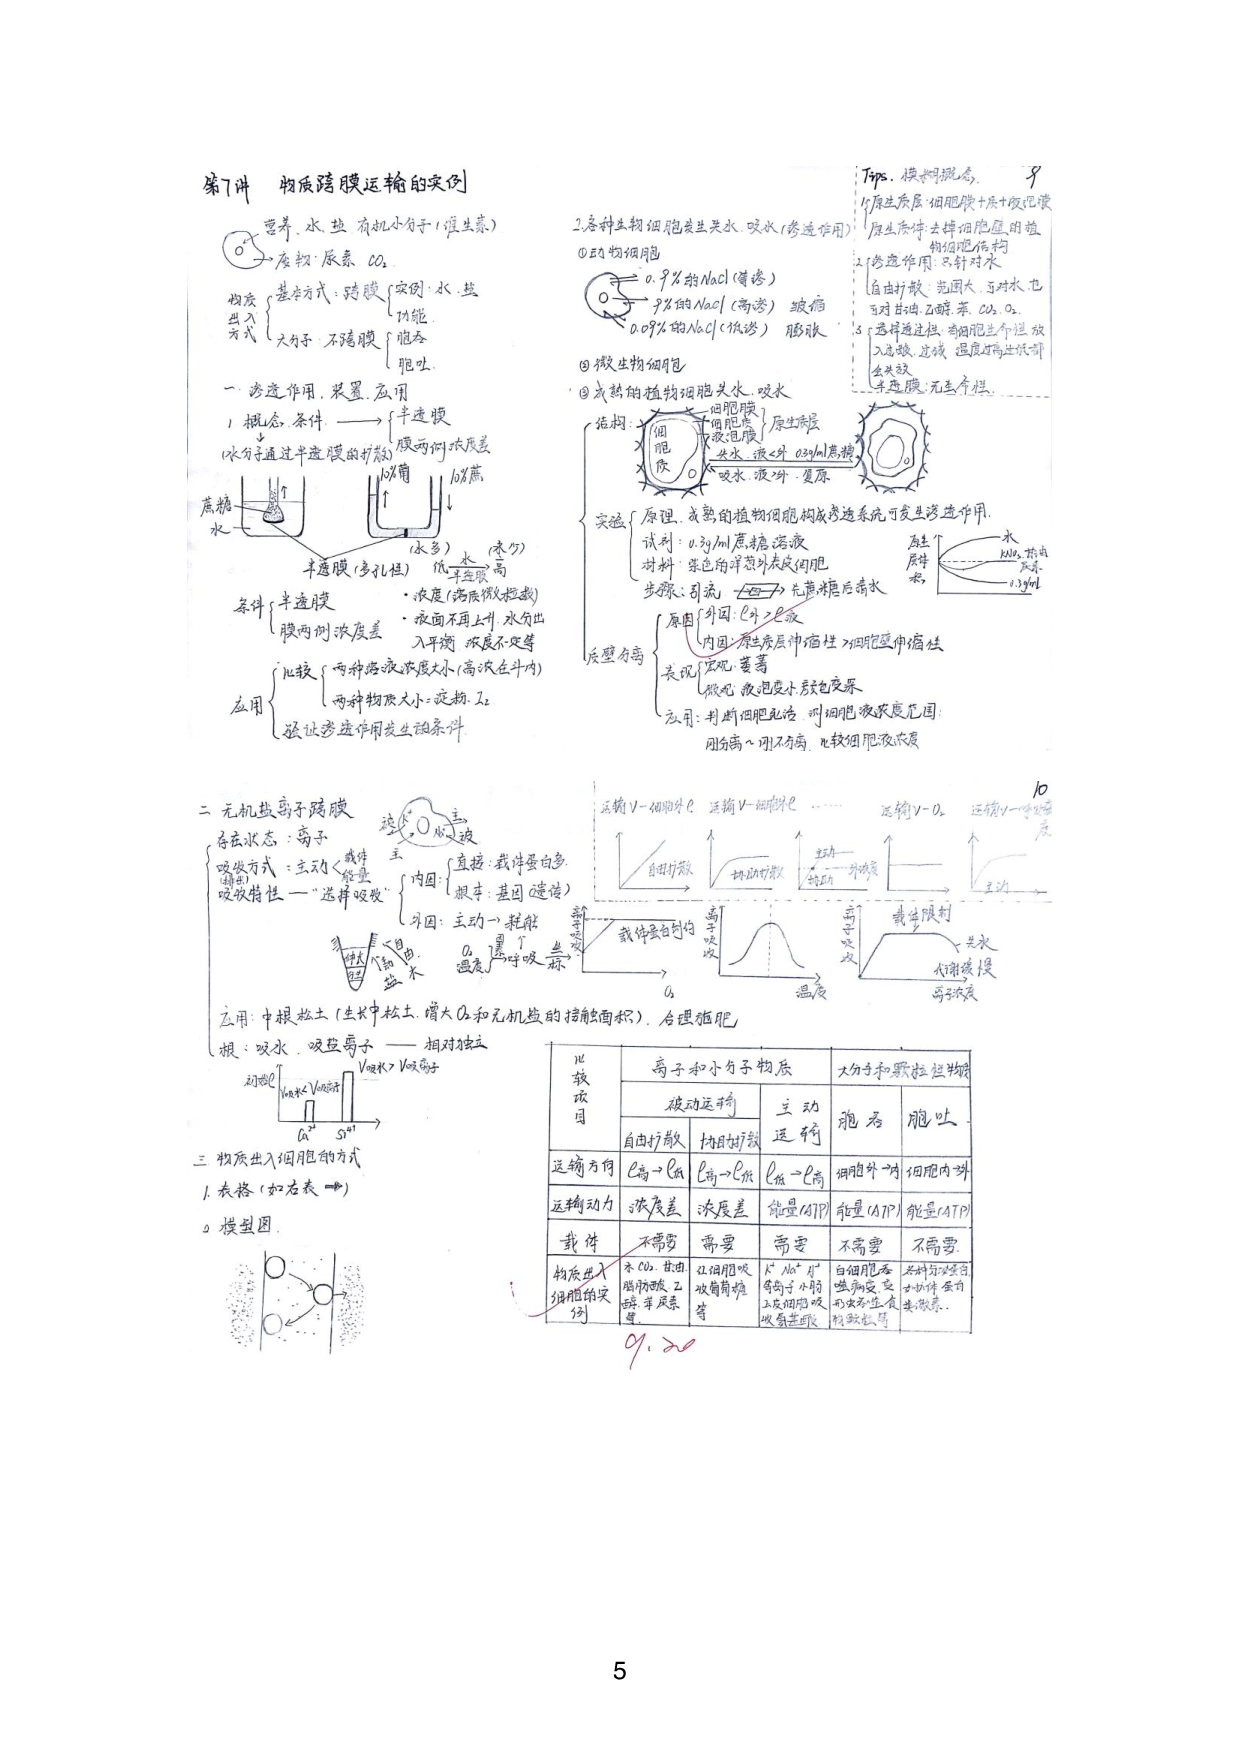 第7讲 物质跨膜运输的实例
营养、水、盐、有机小分子(维生素)
废物:尿素 CO₂
物质出入方式
基本方式:跨膜
实例:水、盐
功能
大分子:不跨膜
胞吞
胞吐
一、渗透作用、装置、应用
1. 概念、条件
半透膜
膜两侧浓度差
(水分子通过半透膜的扩散)
10%葡
10%蔗
蔗糖
水
半透膜(多孔性)
(水多)
低
水
半透膜
高
条件
半透膜
膜两侧浓度差
·浓度(溶质微粒数)
·液面不再上升,水分出
入平衡,浓度不定等
应用
比较
两种溶液浓度大小(高浓在斗内)
两种物质大小=淀粉、I₂
验证渗透作用发生的条件
2.各种生物细胞发生失水、吸水(渗透作用)
①动物细胞
0.9%的NaCl(等渗)
9%的NaCl(高渗) 皱缩
0.09%的NaCl(低渗) 膨胀
②微生物细胞
③成熟的植物细胞失水、吸水
结构:
细胞膜
细胞质
液泡膜
原生质层
细胞质
失水 液<外 0.3g/ml蔗糖
吸水 液>外 复原
实验
原理:成熟的植物细胞构成渗透系统可发生渗透作用.
试剂:0.3g/ml蔗糖溶液
材料:紫色的洋葱外表皮细胞
步骤:引流
先蔗糖后清水
水
0.3g/ml
质壁分离
原因
外因:ρ外>ρ液
内因:原生质层伸缩性>细胞壁伸缩性
表现
宏观:萎蔫
微观:液泡变小,颜色变深
应用:判断细胞死活 测细胞液浓度范围:
刚分离~刚不分离 比较细胞液浓度
Tips. 模糊概念. 9
1.原生质层:细胞膜+质+液泡膜
原生质体:去掉细胞壁的植
物细胞结构
2.渗透作用:只针对水
自由扩散:范围大,可对水,也
可对甘油、乙醇、苯、CO₂、O₂.
3.选择透过性:有细胞生命性,放
入过酸、过碱、温度过高过低都
会失效
半透膜:无生命性.
10
二、无机盐离子跨膜
存在状态:离子
吸收方式:主动
(排出)
载体
能量
吸收特性—"选择吸收"
K⁺
Na⁺
主
被
内因:
直接:载体蛋白多.
根本:基因(遗传)
外因:主动→耗能
O₂
温度
呼吸
自由
水
盐
应用:中根松土(生长中松土,增大O₂和无机盐的接触面积),合理施肥
根:吸水、吸盐离子——相对独立
初始ρ
V吸水<V吸离子
V吸水>V吸离子
Ca²⁺ Si⁴⁺
运输V-细胞外ρ
运输V-细胞外ρ
……
运输V-O₂
自由扩散
协助扩散
主动
协助
主动
离子吸收
载体蛋白制约
O₂
离子吸收
温度
离子吸收
载体限制
失水
代谢缓慢
离子浓度
三、物质出入细胞的方式
1.表格(如右表➡)
2.模型图.
比较项目
离子和小分子物质
大分子和颗粒性物质
被动运输
主动运输
胞吞
胞吐
自由扩散 协助扩散
运输方向 ρ高→ρ低 ρ高→ρ低 ρ低→ρ高 细胞外→内 细胞内→外
运输动力 浓度差 浓度差 能量(ATP) 能量(ATP) 能量(ATP)
载体 不需要 需要 需要 不需要 不需要.
物质出入细胞的实例
水、CO₂、甘油、脂肪酸、乙醇、苯、尿素等
红细胞吸收葡萄糖等
K⁺ Na⁺ 等离子 小肠上皮细胞吸收氨基酸
白细胞吞噬病变、变形虫吞食食物颗粒等
9.20
5